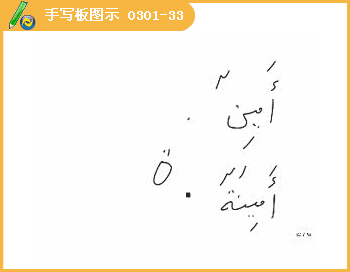 手写板图示 0301-33
أَمِينٌ
ة . أَمِينَةٌ